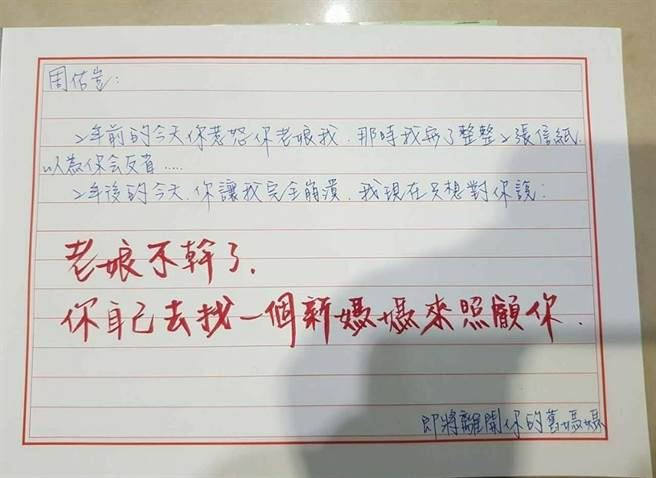 周佑岦:
2年前的今天你惹怒你老娘我.那時我寫了整整2張信紙.
以為你会反省.....
2年後的今天.你讓我完全崩潰.我現在只想對你說:
老娘不幹了.
你自己去找一個新媽媽來照顧你.
即將離開你的舊媽媽